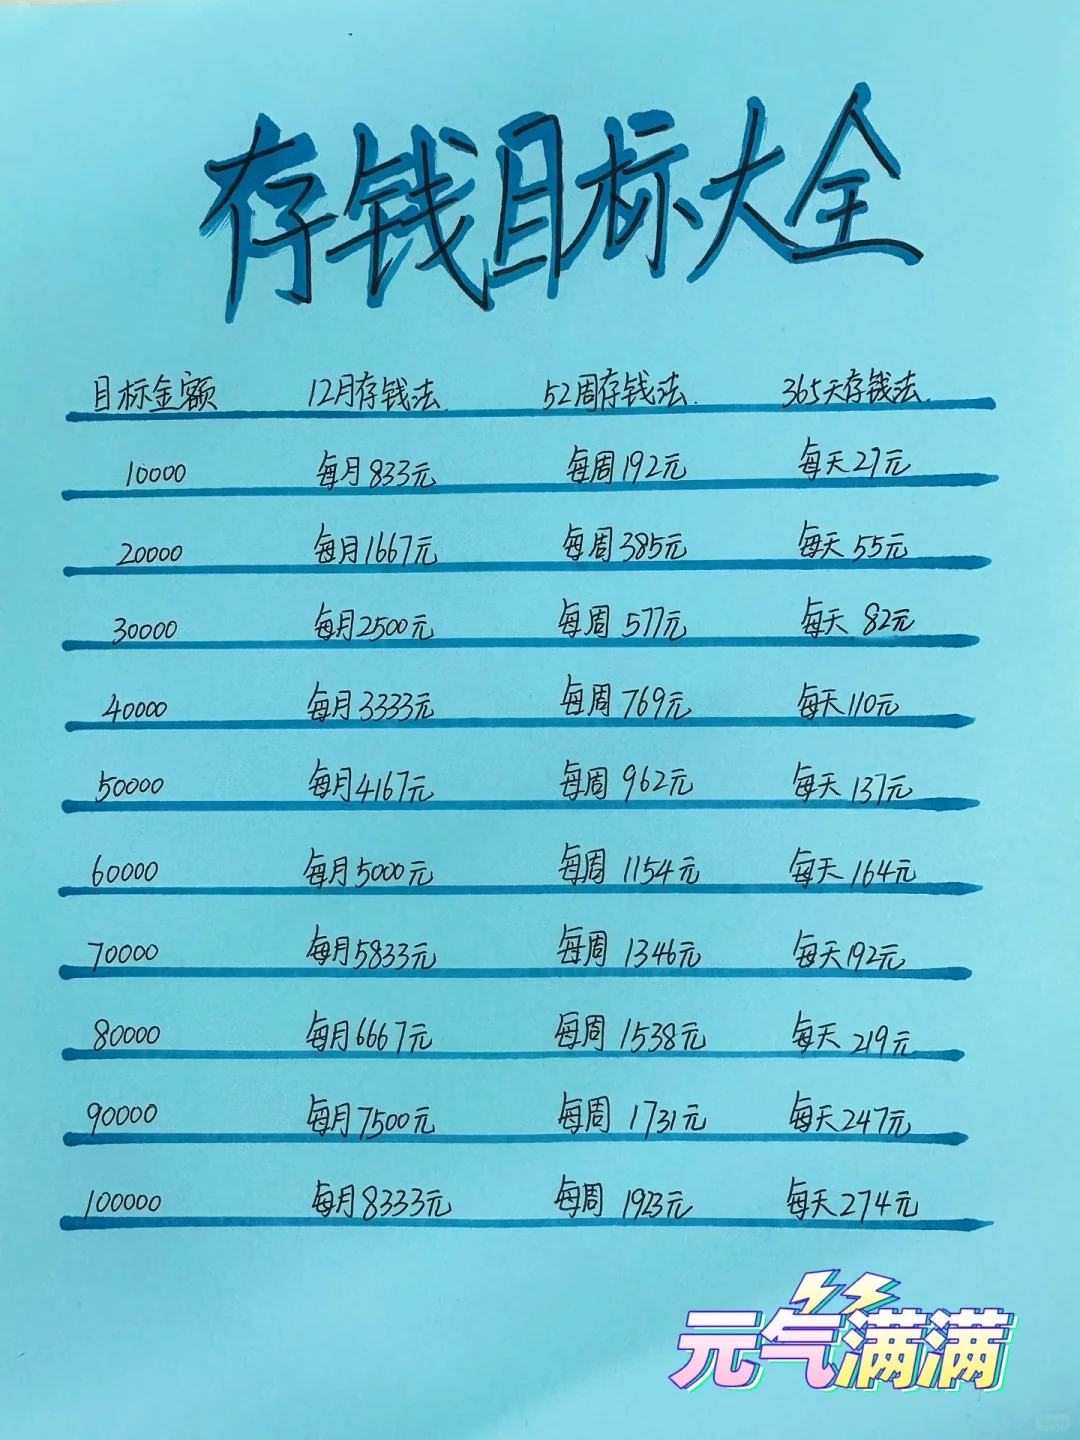 存钱目标大全
目标金额 12月存钱法. 52周存钱法. 365天存钱法.
10000 每月833元 每周192元 每天27元
20000 每月1667元 每周385元 每天55元
30000 每月2500元 每周577元 每天82元
40000 每月3333元 每周769元 每天110元
50000 每月4167元 每周962元 每天137元
60000 每月5000元 每周1154元 每天164元
70000 每月5833元 每周1346元 每天192元
80000 每月6667元 每周1538元 每天219元
90000 每月7500元 每周1731元 每天247元
100000 每月8333元 每周1923元 每天274元
元气满满